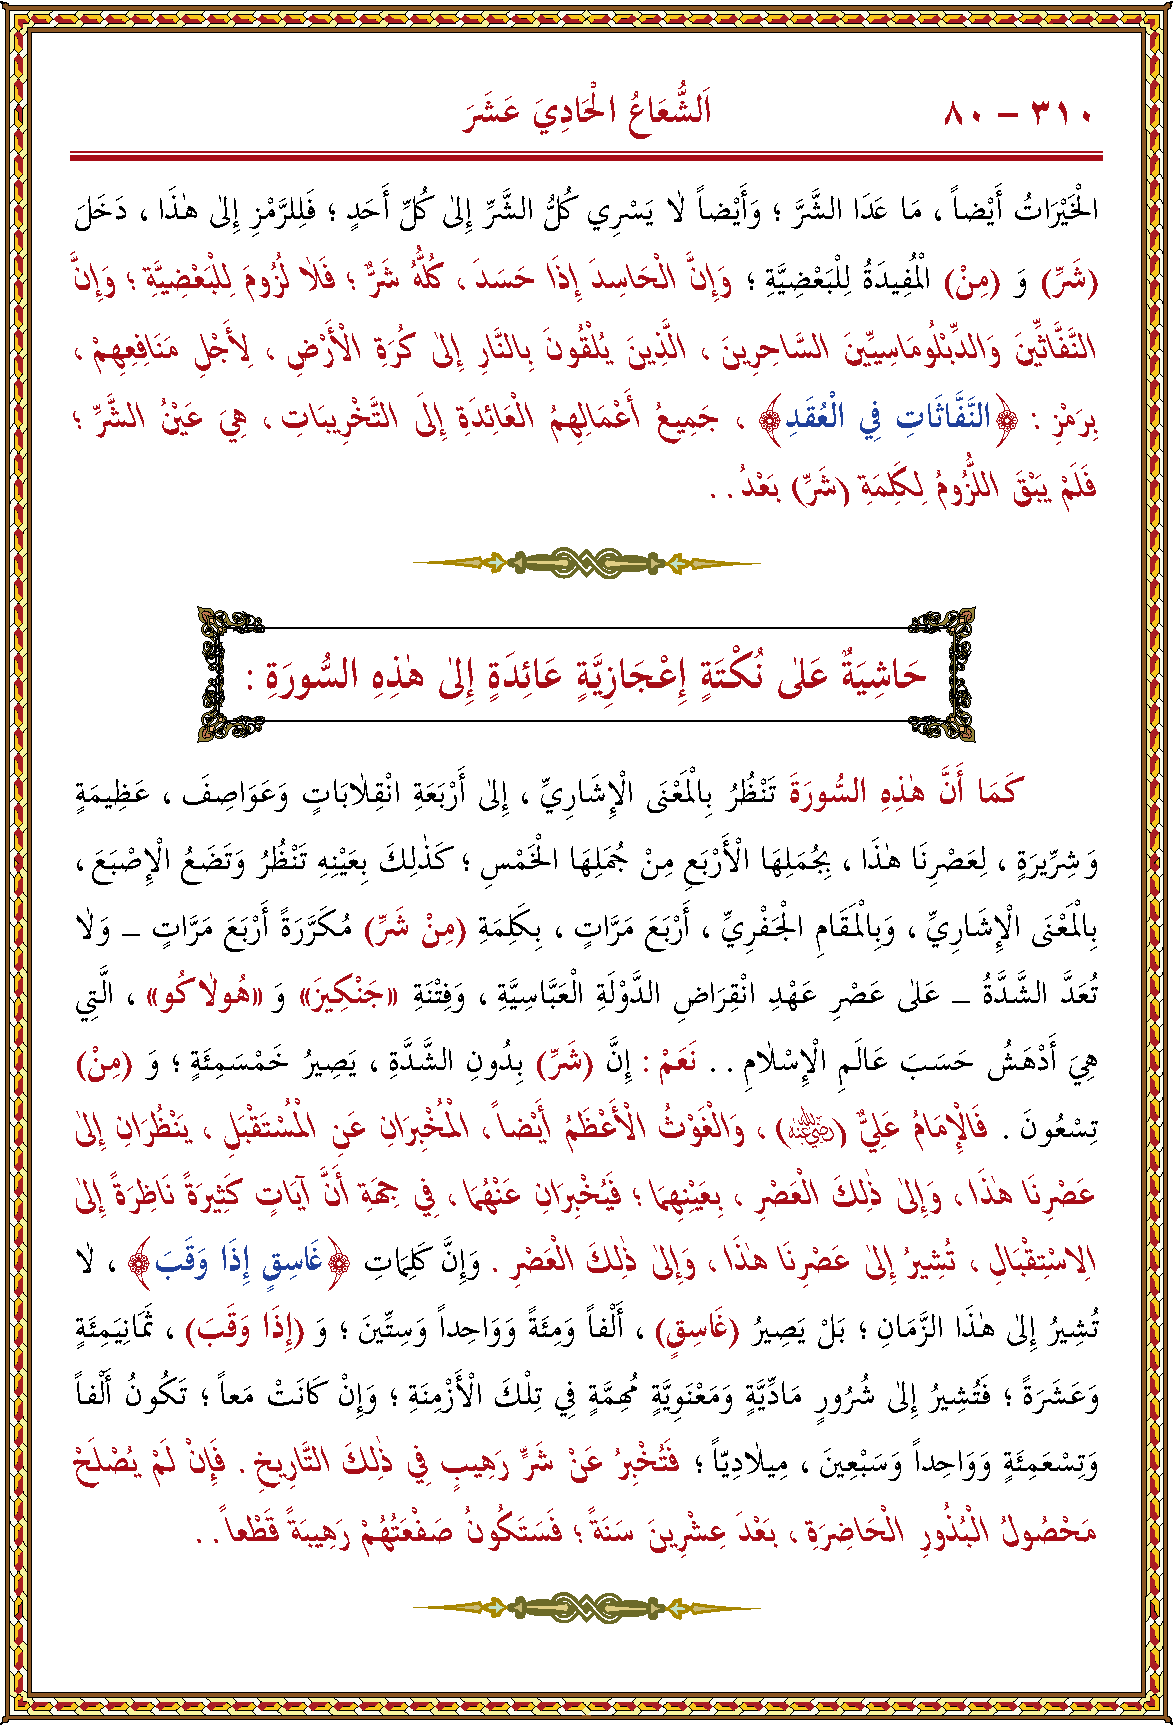 ٣١٠ – ٨٠ اَلشُّعَاعُ الْحَادِيَ عَشَرَ
الْخَيْرَاتُ أَيْضاً ، مَا عَدَا الشَّرَّ ؛ وَأَيْضاً لاٰ يَسْرِي كُلُّ الشَّرِّ إِلىٰ كُلِّ أَحَدٍ ؛ فَلِلرَّمْزِ إِلىٰ هٰذَا ، دَخَلَ
(شَرِّ) وَ (مِنْ) الْمُفِيدَةُ لِلْبَعْضِيَّةِ ؛ وَإِنَّ الْحَاسِدَ إِذَا حَسَدَ ، كُلُّهُ شَرٌّ ؛ فَلاٰ لُزُومَ لِلْبَعْضِيَّةِ ؛ وَإِنَّ
النَّفَّاثِّينَ وَالدِّبْلُومَاسِيِّينَ السَّاحِرِينَ ، الَّذِينَ يُلْقُونَ بِالنَّارِ إِلىٰ كُرَةِ الْأَرْضِ ، لِأَجْلِ مَنَافِعِهِمْ ،
بِرَمْزِ : ﴿النَّفَّاثَاتِ فِي الْعُقَدِ﴾ ، جَمِيعُ أَعْمَالِهِمُ الْعَائِدَةِ إِلَى التَّخْرِيبَاتِ ، هِيَ عَيْنُ الشَّرِّ ؛
فَلَمْ يَبْقَ اللُّزُومُ لِكَلِمَةِ (شَرِّ) بَعْدُ . .
حَاشِيَةٌ عَلىٰ نُكْتَةٍ إِعْجَازِيَّةٍ عَائِدَةٍ إِلىٰ هٰذِهِ السُّورَةِ :
كَمَا أَنَّ هٰذِهِ السُّورَةَ تَنْظُرُ بِالْمَعْنَى الْإِشَارِيِّ ، إِلىٰ أَرْبَعَةِ انْقِلاٰبَاتٍ وَعَوَاصِفَ ، عَظِيمَةٍ
وَ شِرِّيرَةٍ ، لِعَصْرِنَا هٰذَا ، بِجُمَلِهَا الْأَرْبَعِ مِنْ جُمَلِهَا الْخَمْسِ ؛ كَذٰلِكَ بِعَيْنِهِ تَنْظُرُ وَتَضَعُ الْإِصْبَعَ ،
بِالْمَعْنَى الْإِشَارِيِّ ، وَبِالْمَقَامِ الْجَفْرِيِّ ، أَرْبَعَ مَرَّاتٍ ، بِكَلِمَةِ (مِنْ شَرِّ) مُكَرَّرَةً أَرْبَعَ مَرَّاتٍ – وَلاٰ
تُعَدَّ الشَّدَّةُ – عَلىٰ عَصْرِ عَهْدِ انْقِرَاضِ الدَّوْلَةِ الْعَبَّاسِيَّةِ ، وَفِتْنَةِ «جَنْكِيزَ» وَ «هُولاٰكُو» ، الَّتِي
هِيَ أَدْهَشُ حَسَبَ عَالَمِ الْإِسْلاٰمِ . . نَعَمْ : إِنَّ (شَرِّ) بِدُونِ الشَّدَّةِ ، يَصِيرُ خَمْسَمِئَةٍ ؛ وَ (مِنْ)
تِسْعُونَ . فَالْإِمَامُ عَلِيٌّ (رضي الله عنه) ، وَالْغَوْثُ الْأَعْظَمُ أَيْضاً ، الْمُخْبِرَانِ عَنِ الْمُسْتَقْبَلِ ، يَنْظُرَانِ إِلىٰ
عَصْرِنَا هٰذَا ، وَإِلىٰ ذٰلِكَ الْعَصْرِ ، بِعَيْنِهِمَا ؛ فَيُخْبِرَانِ عَنْهُمَا ، فِي جِهَةِ أَنَّ آيَاتٍ كَثِيرَةً نَاظِرَةً إِلىٰ
الِاسْتِقْبَالِ ، تُشِيرُ إِلىٰ عَصْرِنَا هٰذَا ، وَإِلىٰ ذٰلِكَ الْعَصْرِ . وَإِنَّ كَلِمَاتِ ﴿غَاسِقٍ إِذَا وَقَبَ﴾ ، لاٰ
تُشِيرُ إِلىٰ هٰذَا الزَّمَانِ ؛ بَلْ يَصِيرُ (غَاسِقٍ) ، أَلْفاً وَمِئَةً وَوَاحِداً وَسِتِّينَ ؛ وَ (إِذَا وَقَبَ) ، ثَمَانِيَمِئَةٍ
وَعَشَرَةً ؛ فَتُشِيرُ إِلىٰ شُرُورٍ مَادِّيَّةٍ وَمَعْنَوِيَّةٍ مُهِمَّةٍ فِي تِلْكَ الْأَزْمِنَةِ ؛ وَإِنْ كَانَتْ مَعاً ؛ تَكُونُ أَلْفاً
وَتِسْعَمِئَةٍ وَوَاحِداً وَسَبْعِينَ ، مِيلاٰدِيّاً ؛ فَتُخْبِرُ عَنْ شَرٍّ رَهِيبٍ فِي ذٰلِكَ التَّارِيخِ . فَإِنْ لَمْ يُصْلَحْ
مَحْصُولُ الْبُذُورِ الْحَاضِرَةِ ، بَعْدَ عِشْرِينَ سَنَةً ؛ فَسَتَكُونُ صَفْعَتُهُمْ رَهِيبَةً قَطْعاً . .